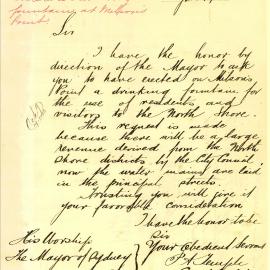 fountain at Milson's
Point
Sir
I have the honor by
direction of the Mayor to ask
you to have erected on Milson's
Point a drinking fountain for
the use of residents and
visitors to the North Shore.
This request is made
because there will be a large
revenue derived from the North
Shore districts by the City Council
now the water mains are laid
in the principal streets.
Trusting you will give it
your favorable consideration
I have the honor to be
Sir
Your Obedient Servant
His Worship
The Mayor of Sydney